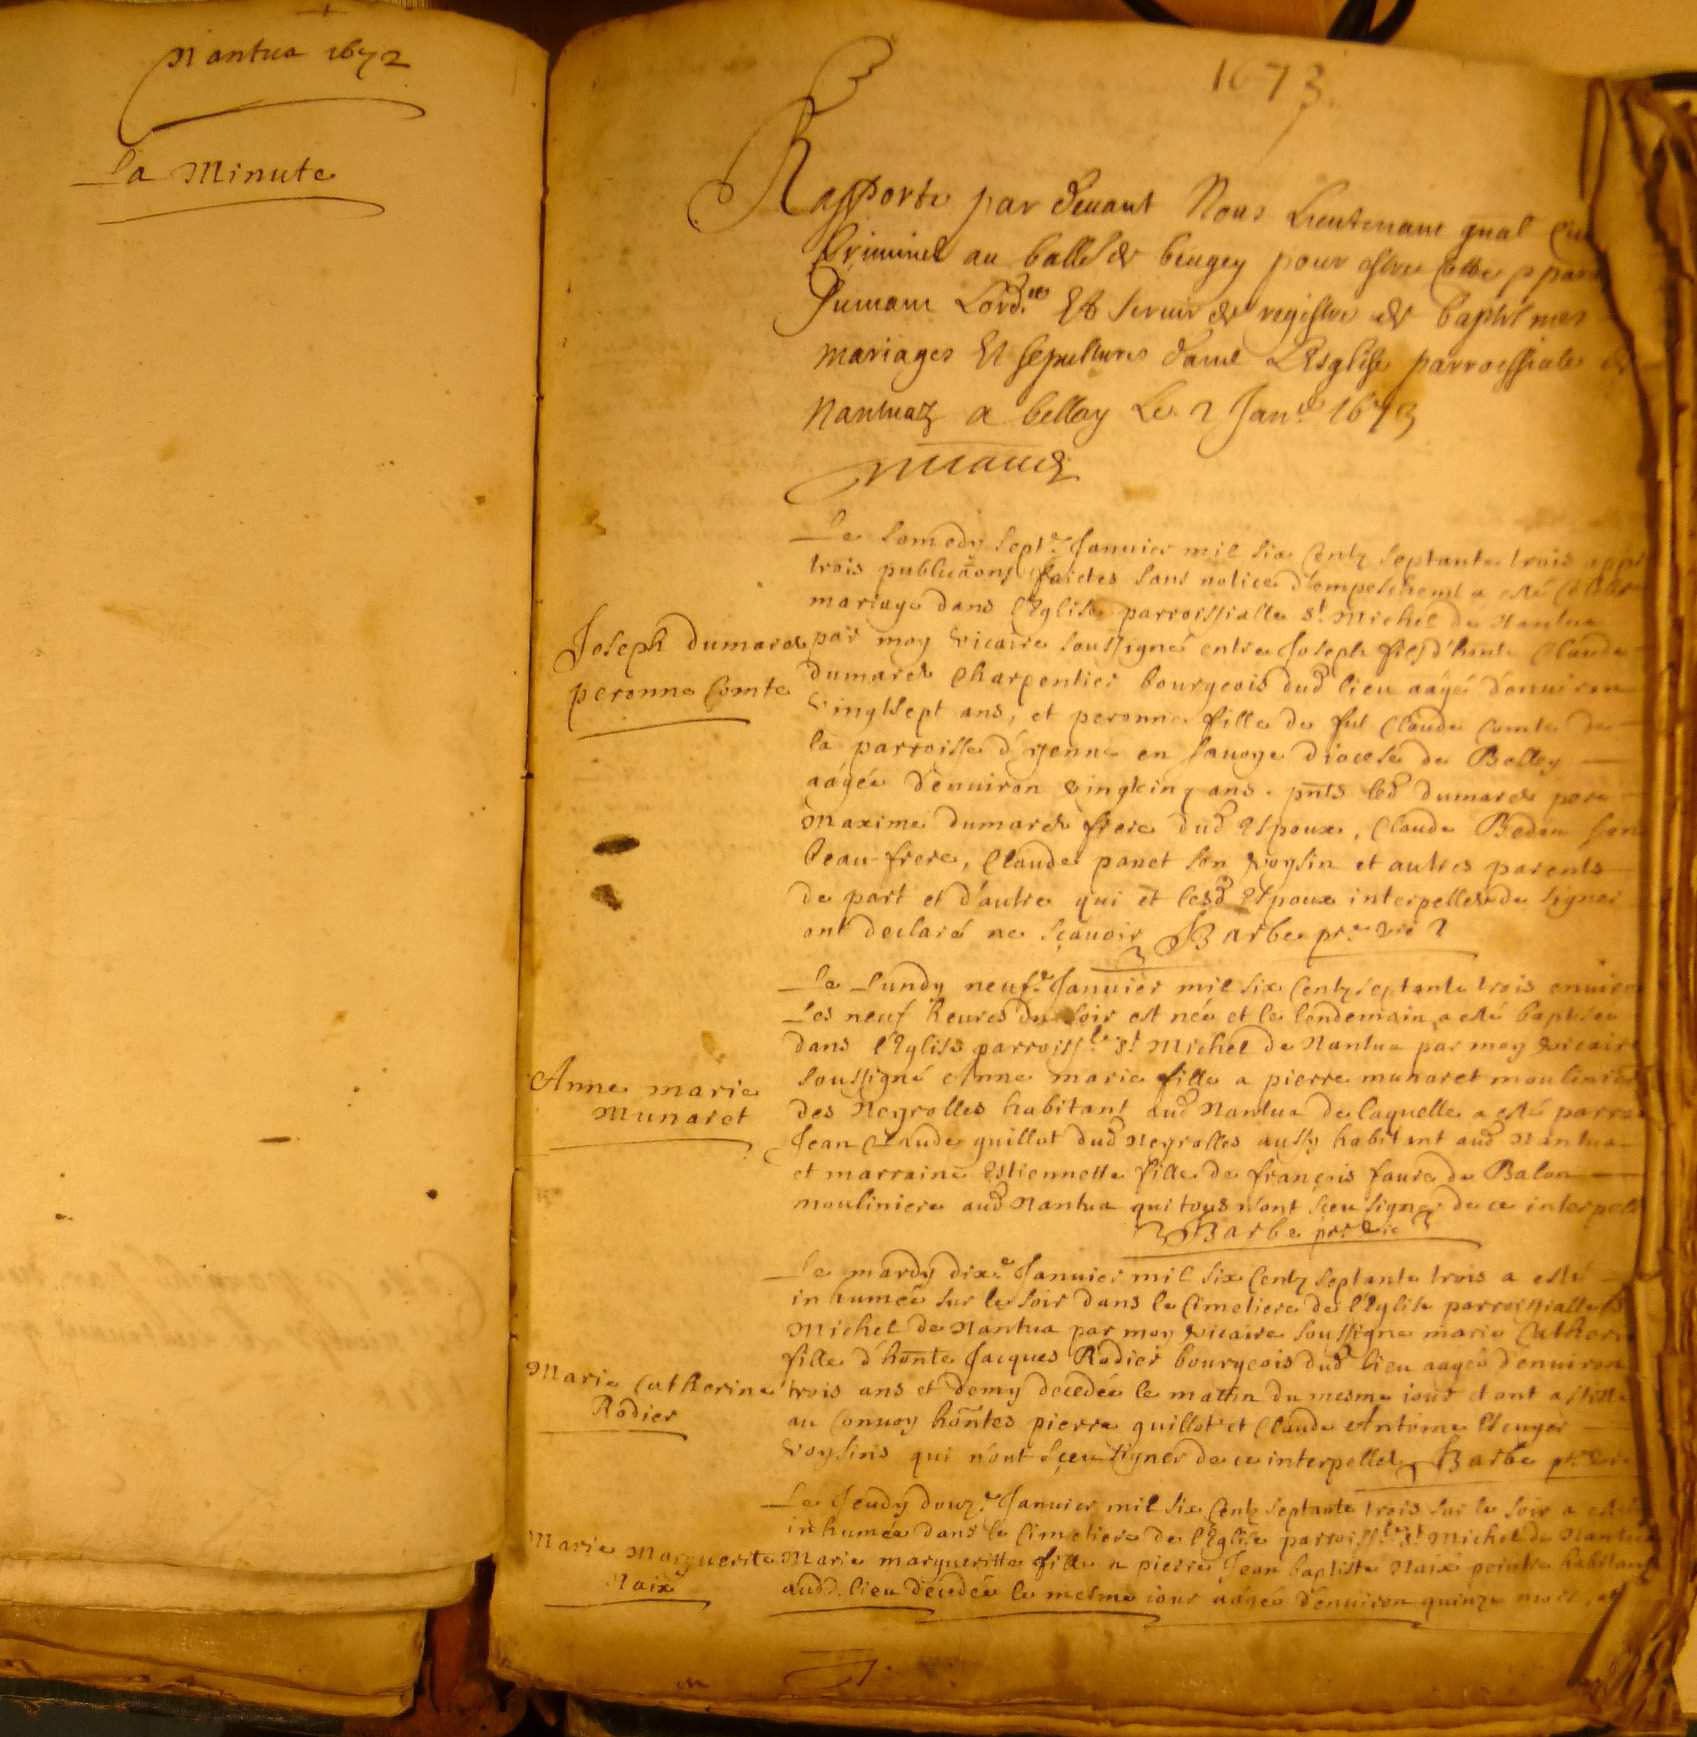 Nantua 1672
La Minute
1673
Rapporte par deuant Nous Lieutenant gnal
Criminel au balle de beugey pour estre
suiuant Lordre Et seruir de registre de baptesmes
mariages Et sepultures dans L'Esglise parroissiale de
Nantuaz a belley le 2 Janer 1673
Le Samedy septe Januier mil six centz septante trois
trois publicaons faictes sans notice d'empeschemt a esté celebré
mariage dans l'Eglise parroissialle St Michel de Nantua
Joseph dumarest
peronne Comte
par moy vicaire soussigné entre Joseph fils d'honte Claude
dumarest charpentier bourgeois dud lieu aagé d'enuiron
vingtsept ans, et peronne fille de fut Claude Comte de
la parroisse d'yenne en sauoye diocese de Belley
aagée d'enuiron vingtcinq ans. pnts led dumarest pere
Maxime dumarest frere dud Espoux, Claude Bedon son
beau-frere, Claude panet son voysin et autres parents
de part et d'autre qui et lesd Espoux interpelles de signer
ont declaré ne sçauoir Barbe pre vic
Le Lundy neufe Januier mil six centz septante trois enuiron
Les neuf heures du soir est née et le lendemain a esté baptisée
dans l'Eglise parroissle St Michel de Nantua par moy vicaire
Anne marie
Munaret
soussigné Anne marie fille a pierre munaret moulinier
des Neyrolles habitant aud Nantua de laquelle a esté parrain
Jean Claude guillot dud Neyrolles aussy habitant aud Nantua
et marraine Estiennette fille de françois faure de Balon
mouliniere aud Nantua qui tous n'ont sceu signer de ce interpelles
Barbe pre vic
Le mardy dixe Januier mil six centz septante trois a esté
inhumée sur le soir dans le Cimetiere de l'Eglise parroissialle St
Michel de Nantua par moy vicaire soussigne marie Catherine
fille d'honte Jacques Rodier bourgeois dud lieu aagée d'enuiron
Marie Catherine
Rodier
trois ans et demy decedée le matin du mesme iour et ont assisté
au Conuoy hontes pierre guillot et Claude Antoine
voysins qui n'ont sceu signer de ce interpelles Barbe pre vic
Le Jeudy douze Januier mil six centz septante trois sur le soir a esté
inhumée dans le Cimetiere de l'Eglise parroissle St Michel de Nantua
Marie Marguerite
Naix
Marie margueritte fille a pierre Jean baptiste Naix peintre habitant
aud. lieu decedée le mesme iour aagée d'enuiron quinze mois, et